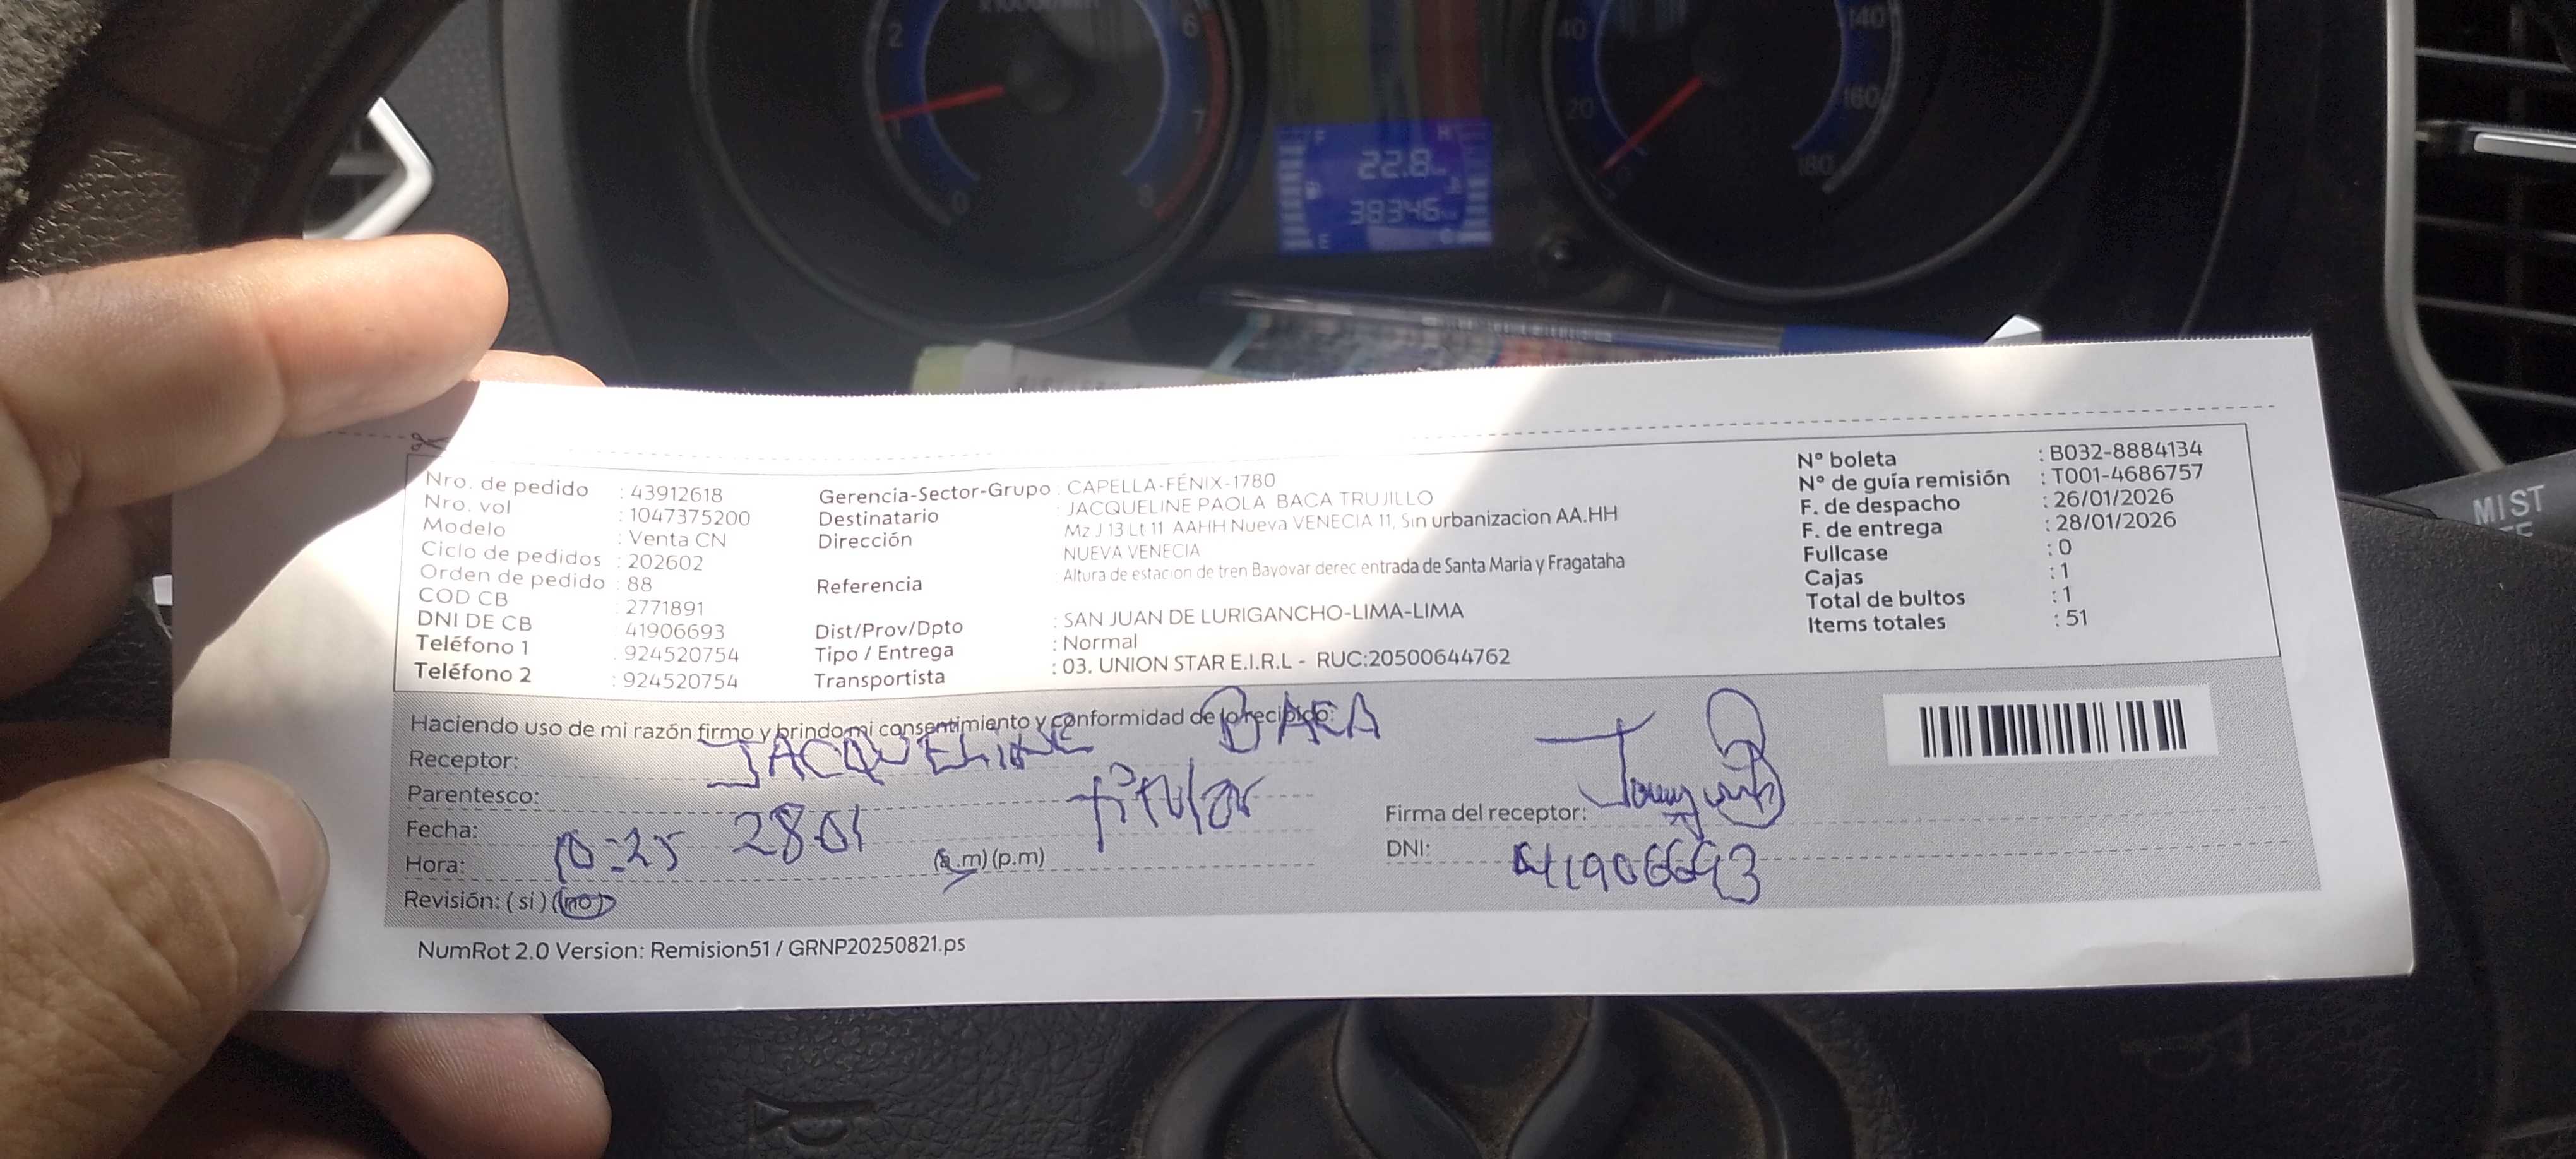 2
6
7
0
8
40
20
140
160
180
F
H
22.8
38346
E
C
MIST
Nro. de pedido : 43912618
Nro. vol : 1047375200
Modelo : Venta CN
Ciclo de pedidos : 202602
Orden de pedido : 88
COD CB : 2771891
DNI DE CB : 41906693
Teléfono 1 : 924520754
Teléfono 2 : 924520754
Gerencia-Sector-Grupo : CAPELLA-FÉNIX-1780
Destinatario : JACQUELINE PAOLA BACA TRUJILLO
Dirección : Mz J 13 Lt 11 AAHH Nueva VENECIA 11, Sin urbanizacion AA.HH
NUEVA VENECIA
Referencia : Altura de estacion de tren Bayovar derec entrada de Santa Maria y Fragataha
Dist/Prov/Dpto : SAN JUAN DE LURIGANCHO-LIMA-LIMA
Tipo / Entrega : Normal
Transportista : 03. UNION STAR E.I.R.L - RUC:20500644762
N° boleta : B032-8884134
N° de guía remisión : T001-4686757
F. de despacho : 26/01/2026
F. de entrega : 28/01/2026
Fullcase : 0
Cajas : 1
Total de bultos : 1
Items totales : 51
Haciendo uso de mi razón firmo y brindo mi consentimiento y conformidad de lo recibido:
Receptor: JACQUELINE BACA
Parentesco: titular
Fecha: 28 01
Hora: 10:25 (a.m) (p.m)
Revisión: ( si ) (no)
Firma del receptor:
DNI: 41906693
NumRot 2.0 Version: Remision51 / GRNP20250821.ps